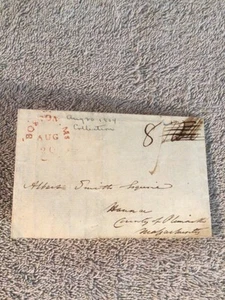 BOSTON MS
AUG
Collection
8
Albert Smith Esquire
Hanover
County of Plymouth
Massachusetts